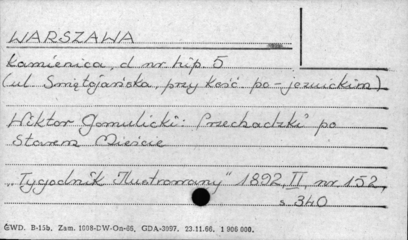 WARSZAWA
kamienica, d nr. hip. 5
(ul. Świętojańska, przy kość. po-jezuickim)
Wiktor Gomulicki: Przechadzki po
Starem Mieście
„Tygodnik Ilustrowany" 1892, II, nr 152,
s. 340
GWD. B-15b. Zam. 1008-DW-On-66. GDA-3097. 23.11.66. 1 900 000.